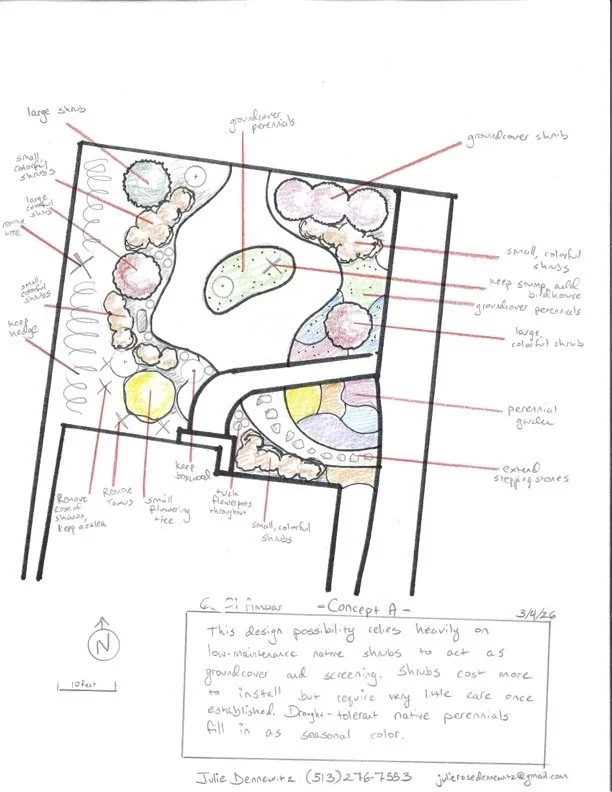 large shrub
groundcover
perennials
groundcover shrub
small,
colorful
shrubs
large
colorful
shrub
remove
tree
small
colorful
shrubs
keep
hedge
small, colorful
shrubs
keep stump, add
birdhouse
groundcover perennials
large,
colorful shrub
perennial
garden
extend
stepping stones
Remove
rose of
sharon,
keep azalea
Remove
Taxus
small
flowering
tree
keep
boxwood
tuck
flowerpots
throughout
small, colorful
shrubs
N
10 feet
- Concept A -
3/4/26
This design possibility relies heavily on
low-maintenance native shrubs to act as
groundcover and screening. Shrubs cost more
to install but require very little care once
established. Drought-tolerant native perennials
fill in as seasonal color.
Julie Dennewitz (513) 276-7553 julierosedennewitz@gmail.com